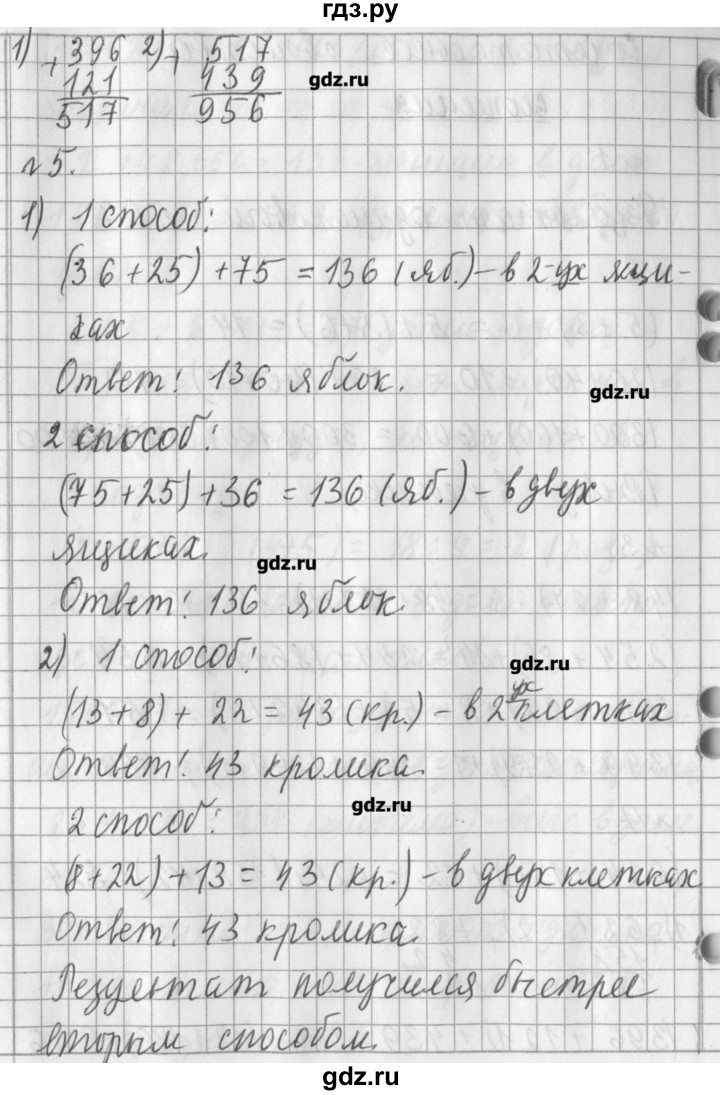 гдз.ру
1) + 396 2) + 517
121 439
517 956
gdz.ru
№5.
1) 1 способ:
(36+25)+75 = 136 (яб.) – в 2-ух ящи-
ках
Ответ: 136 яблок.
gdz.ru
2 способ:
(75+25)+36 = 136 (яб.) – в двух
ящиках.
gdz.ru
Ответ: 136 яблок.
2) 1 способ:
gdz.ru
(13+8)+ 22 = 43 (кр.) – в 2ух клетках
Ответ: 43 кролика.
gdz.ru
2 способ:
(8+22)+13 = 43 (кр.) – в двух клетках
Ответ: 43 кролика.
Резуентат получился быстрее
вторым способом.
gdz.ru